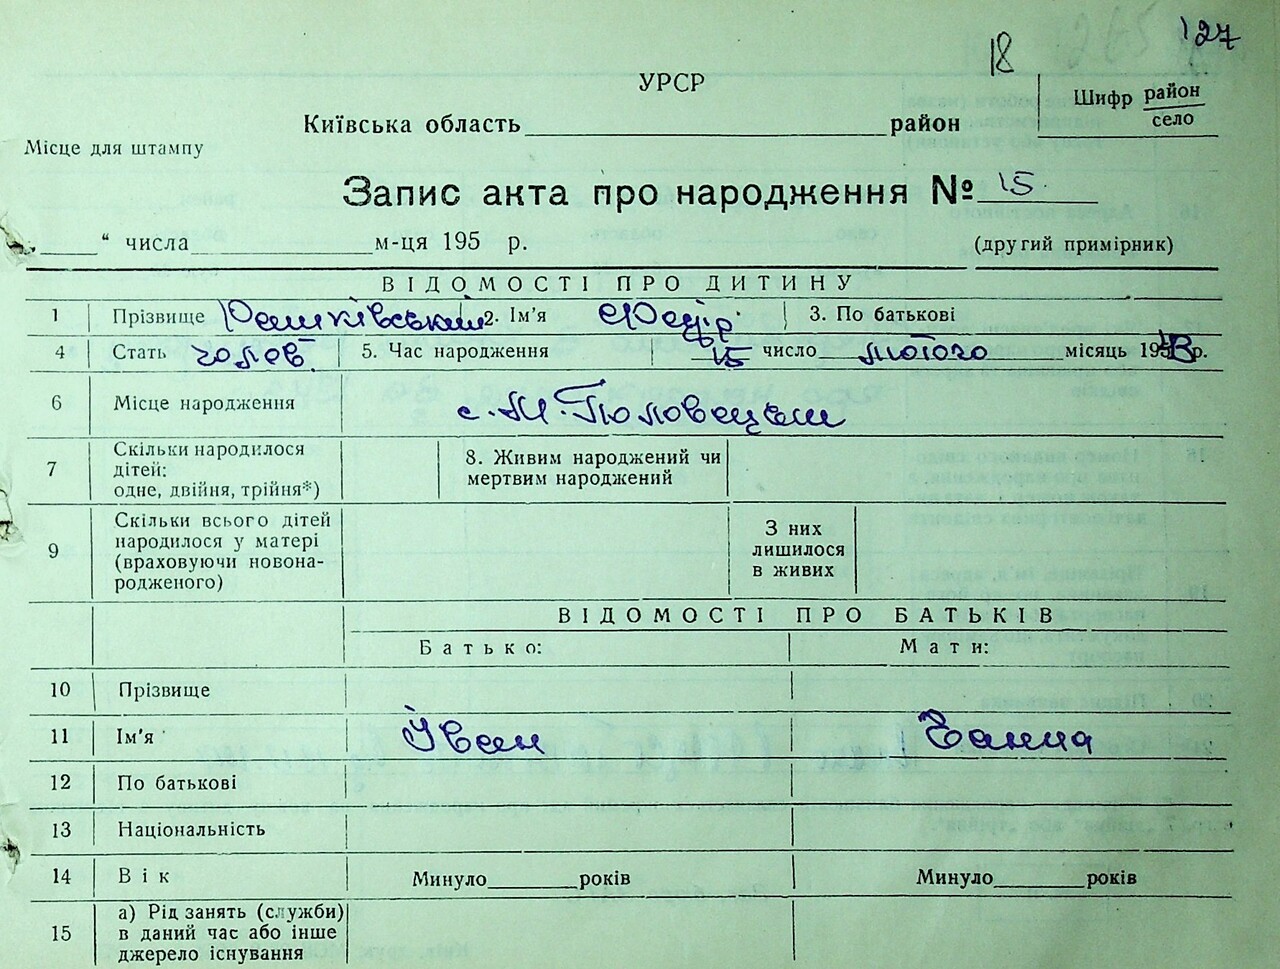 127
18
УРСР
Київська область район
Шифр район
село
Місце для штампу
Запис акта про народження № 15
" числа м-ця 195 р.
(другий примірник)
ВІДОМОСТІ ПРО ДИТИНУ
1 Прізвище 2. Ім'я Федір 3. По батькові
4 Стать чолов. 5. Час народження 15 число лютого місяць 19 р.
6 Місце народження с. М. Половецьки
7 Скільки народилося
дітей:
одне, двійня, трійня*)
8. Живим народжений чи
мертвим народжений
9 Скільки всього дітей
народилося у матері
(враховуючи новона-
родженого)
З них
лишилося
в живих
ВІДОМОСТІ ПРО БАТЬКІВ
Батько: Мати:
10 Прізвище
11 Ім'я Іван Ганна
12 По батькові
13 Національність
14 Вік Минуло років Минуло років
15 а) Рід занять (служби)
в даний час або інше
джерело існування